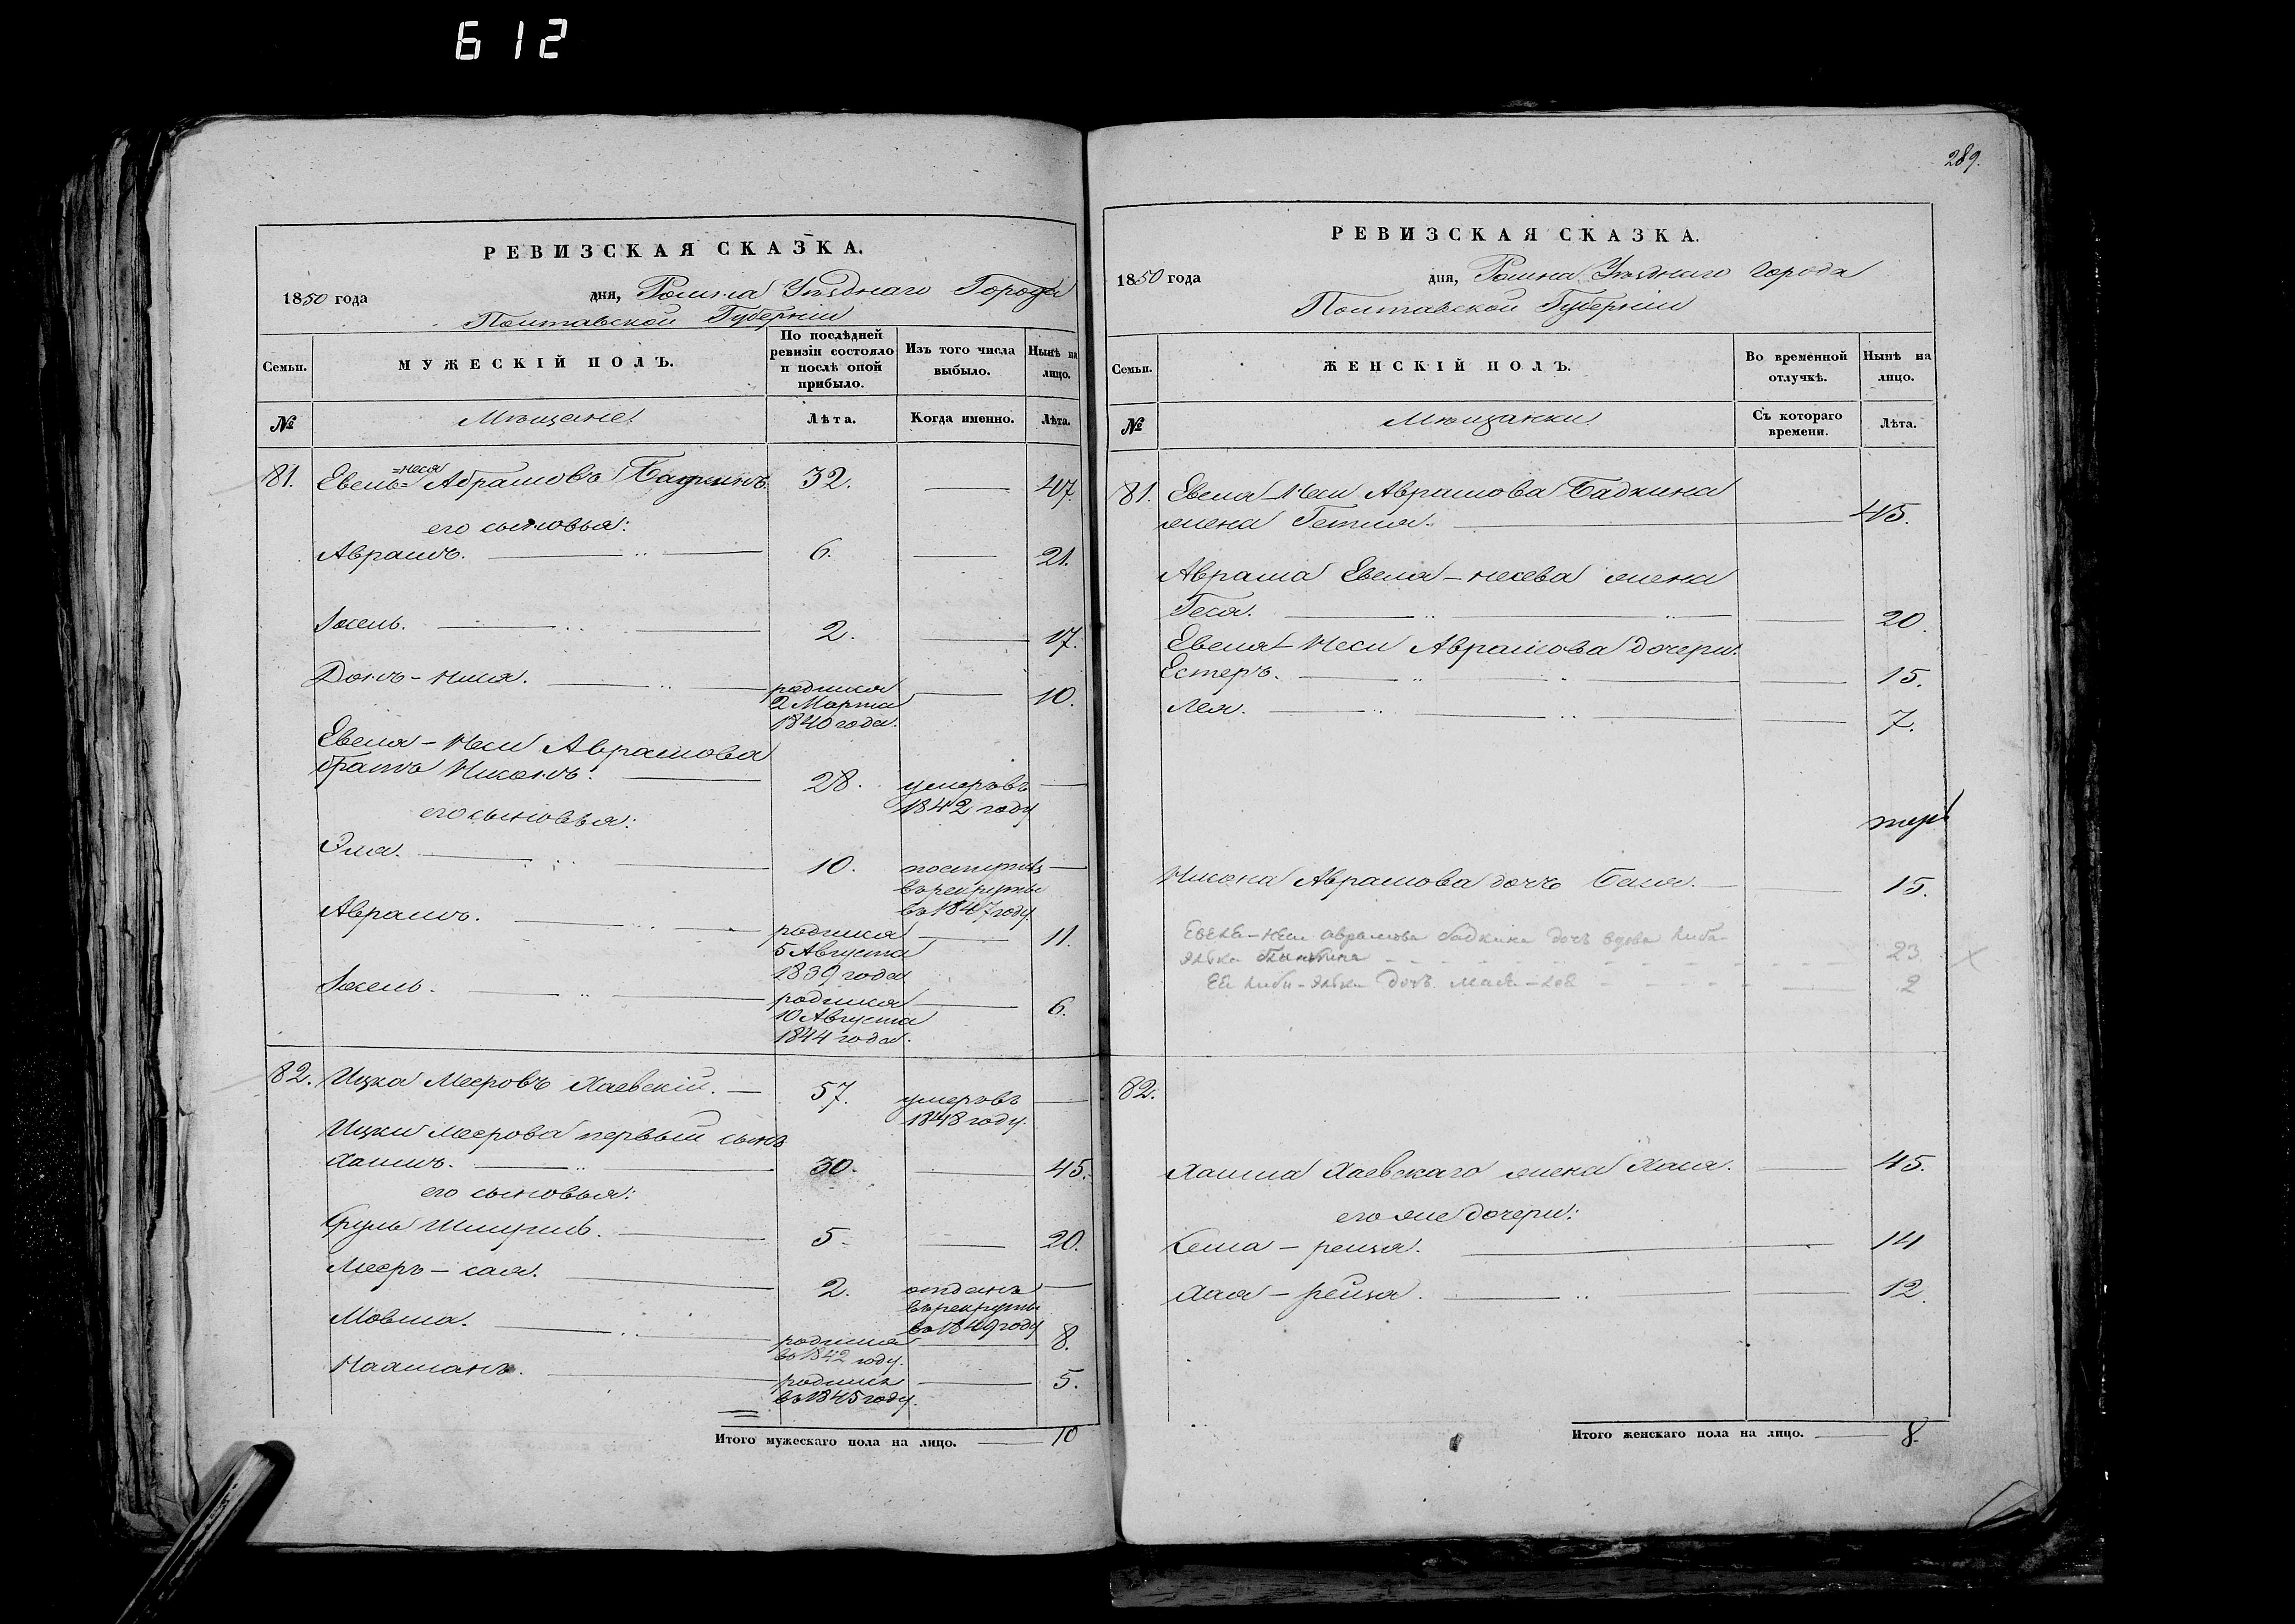 612
289.
РЕВИЗСКАЯ СКАЗКА.
1850 года дня, Ромна Уѣзднаго Города
Полтавской Губерніи
Семьи.
МУЖЕСКІЙ ПОЛЪ.
По послѣдней ревизіи состояло и послѣ оной прибыло.
Изъ того числа выбыло.
Нынѣ на лицо.
№
Мѣщане
Лѣта.
Когда именно.
Лѣта.
=неся
81. Евель= Абрамовъ 32. 47.
его сыновья:
Аврамъ. 6. 21.
Іосель. 2. 17.
родился 10.
2 Марта
1840 года.
Евеля-Неси Аврамова
братъ 28. умеръ въ
1842 году
его сыновья:
Эля. 10. поступилъ
въ рекруты
въ 1847 году.
Аврамъ. родился 11.
5 Августа
1839 года
Іосель. родился 6.
10 Августа
1844 года.
82. Ицка Мееровъ Хаевскій. 57. умеръ въ
1848 году.
Ицки Меерова первый сынъ
Хаимъ. 30. 45.
его сыновья:
Сруль Шмуиль. 5. 20.
Мееръ-сая. 2. отданъ
въ рекруты
въ 1849 году
Мовша. родился 8.
въ 1842 году.
родился 5.
въ 1845 году.
Итого мужескаго пола на лицо. 10
РЕВИЗСКАЯ СКАЗКА.
1850 года дня, Ромна Уѣзднаго Города
Полтавской Губерніи
Семьи.
ЖЕНСКІЙ ПОЛЪ.
Во временной отлучкѣ.
Нынѣ на лицо.
№
Мѣщанки
Съ котораго времени.
Лѣта.
81. Евеля-Неси Аврамова Бадкина
жена 45.
Аврама Евеля-несева жена
Геся. 20.
Евеля-Неси Аврамова дочери.
Естеръ. 15.
Лея. 7.
Аврамова дочь Бася. 15.
Евель-неси аврамова бадкина дочь вдова Либа-
23
Ей дочь 2
82.
Хаима Хаевскаго жена Хася. 45.
его же дочери:
14
Хая-рейза. 12.
Итого женскаго пола на лицо. 8.